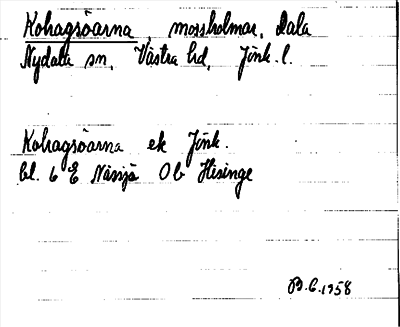 Kohagsöarna, mossholmar, Dala
Nydala sn, Västra hd, Jönk. l.
Kohagsöarna ek Jönk.
bl. 6 E Nässjö Ob Hisinge
B.C. 1958